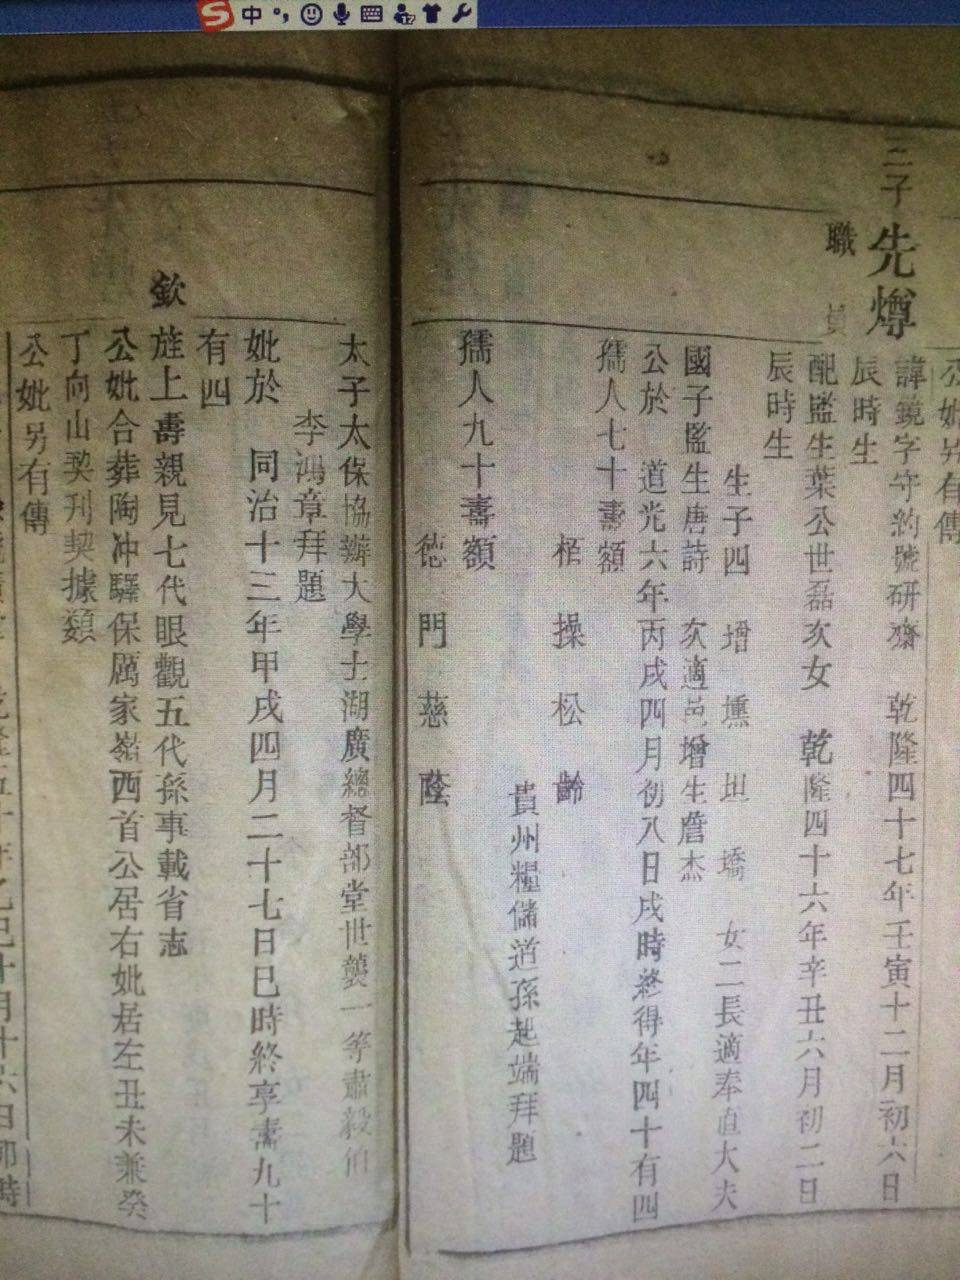 中
公妣另有傳
三子先𤏸
職員
諱鏡字守約號研齋 乾隆四十七年壬寅十二月初六日
辰時生
配監生葉公世磊次女 乾隆四十六年辛丑六月初二日
辰時生
生子四 增 壎 坦 墧 女二長適奉直大夫
國子監生唐詩 次適邑增生詹杰
公於 道光六年丙戌四月初八日戌時終得年四十有四
孺人七十壽額
栢操松齡
貴州糧儲道孫起端拜題
孺人九十壽額
德門慈蔭
太子太保協辦大學士湖廣總督部堂世襲一等肅毅伯
李鴻章拜題
妣於 同治十三年甲戌四月二十七日巳時終享壽九十
有四
欽
旌上壽親見七代眼觀五代孫事載省志
公妣合葬陶冲驛保厲家嶺西首公居右妣居左丑未兼癸
丁向山契刊契據類
公妣另有傳